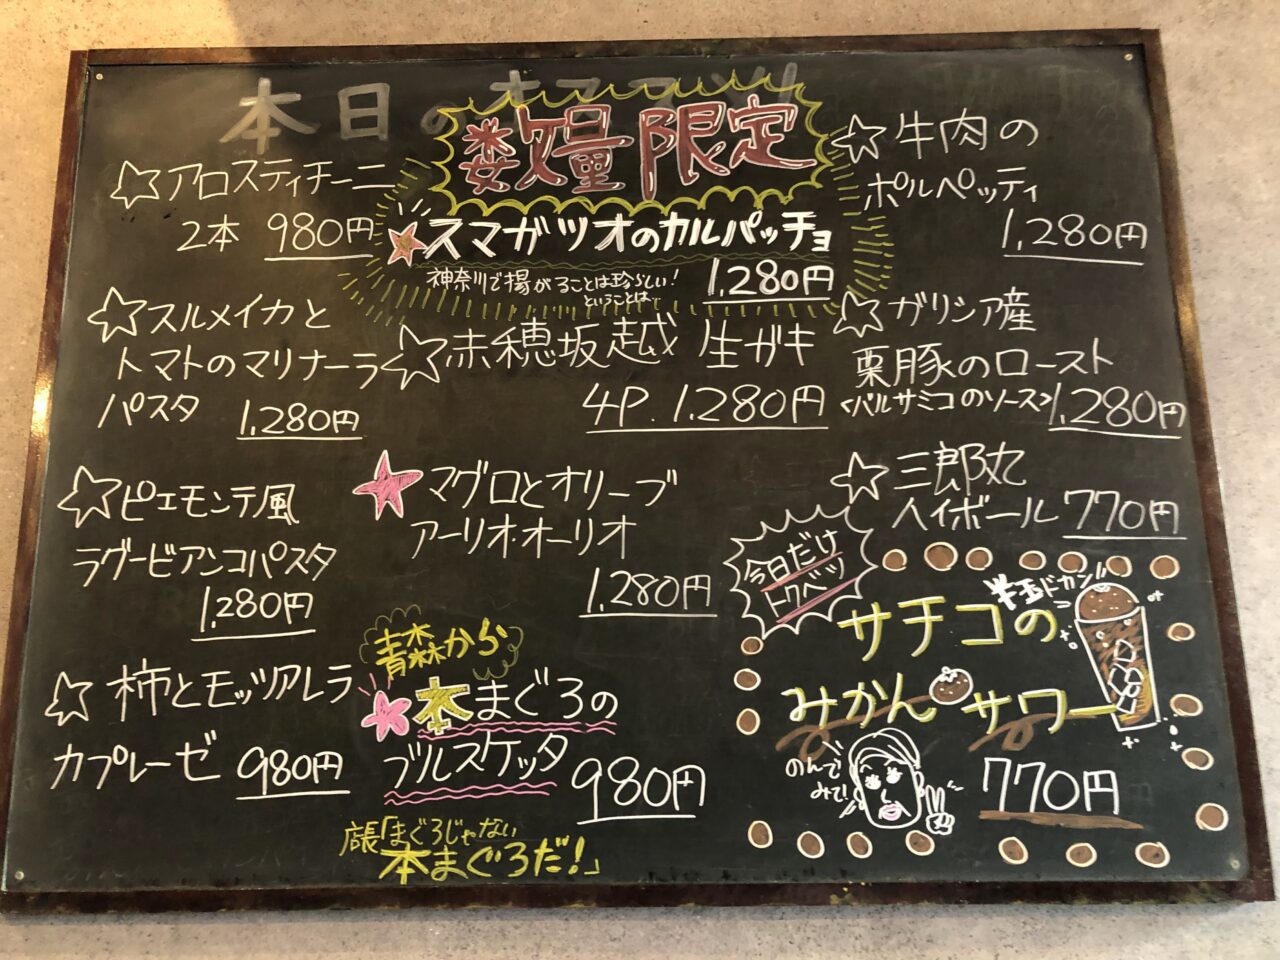 本日のオススメ
数量限定
☆アロスティチーニ
2本 980円
★スマガツオのカルパッチョ
神奈川で揚がることは珍らしい!
ということは…
1,280円
☆牛肉の
ポルペッティ
1,280円
☆スルメイカと
トマトのマリナーラ
パスタ 1,280円
☆赤穂坂越 生ガキ
4P. 1,280円
☆ガリシア産
栗豚のロースト
<バルサミコのソース>1,280円
☆ピエモンテ風
ラグービアンコパスタ
1,280円
★マグロとオリーブ
アーリオ・オーリオ
1,280円
☆三郎丸
ハイボール 770円
☆柿とモッツアレラ
カプレーゼ 980円
青森から
★本まぐろの
ブルスケッタ 980円
店長「まぐろじゃない
本まぐろだ!」
今日だけ
トクベツ
半玉ドカン!!
サチコの
みかんサワー
のんで
みで!
770円